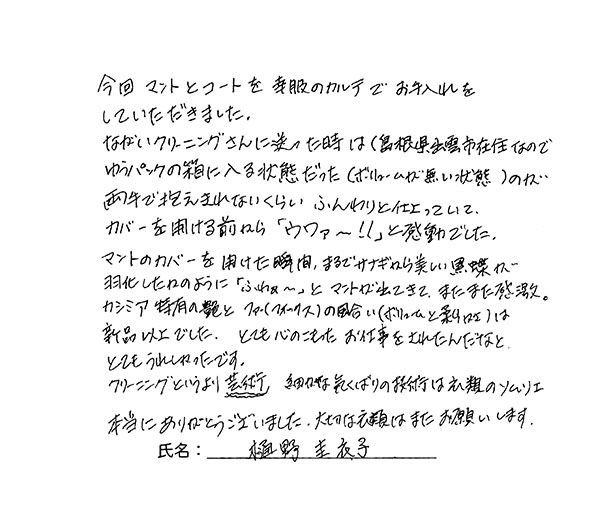 今回 マントとコートを 幸服のカルテで お手入れを
していただきました。
ながいクリーニングさんに送った時は(島根県出雲市在住なので
ゆうパックの箱に入る状態だった(ボリュームが無い状態)のが…
両手で抱えきれないくらい ふんわりと仕上っていて、
カバーを開ける前から「ウワァ〜!!」と感動でした。
マントのカバーを開けた瞬間、まるでサナギから美しい黒蝶が…
羽化したかのように「ふわぁ〜」とマントが出てきて、またまた感激。
カシミア特有の艶と ファー(フォックス)の風合い(ボリュームと柔らかさ)は
新品以上でした。 とても心のこもった お仕事をされたんだなと
とてもうれしかったです。
クリーニングというより 芸術 細やかな気くばりの技術は衣類のソムリエ
本当にありがとうございました。大切な衣類はまたお願いします。
氏名: 樋野 圭衣子